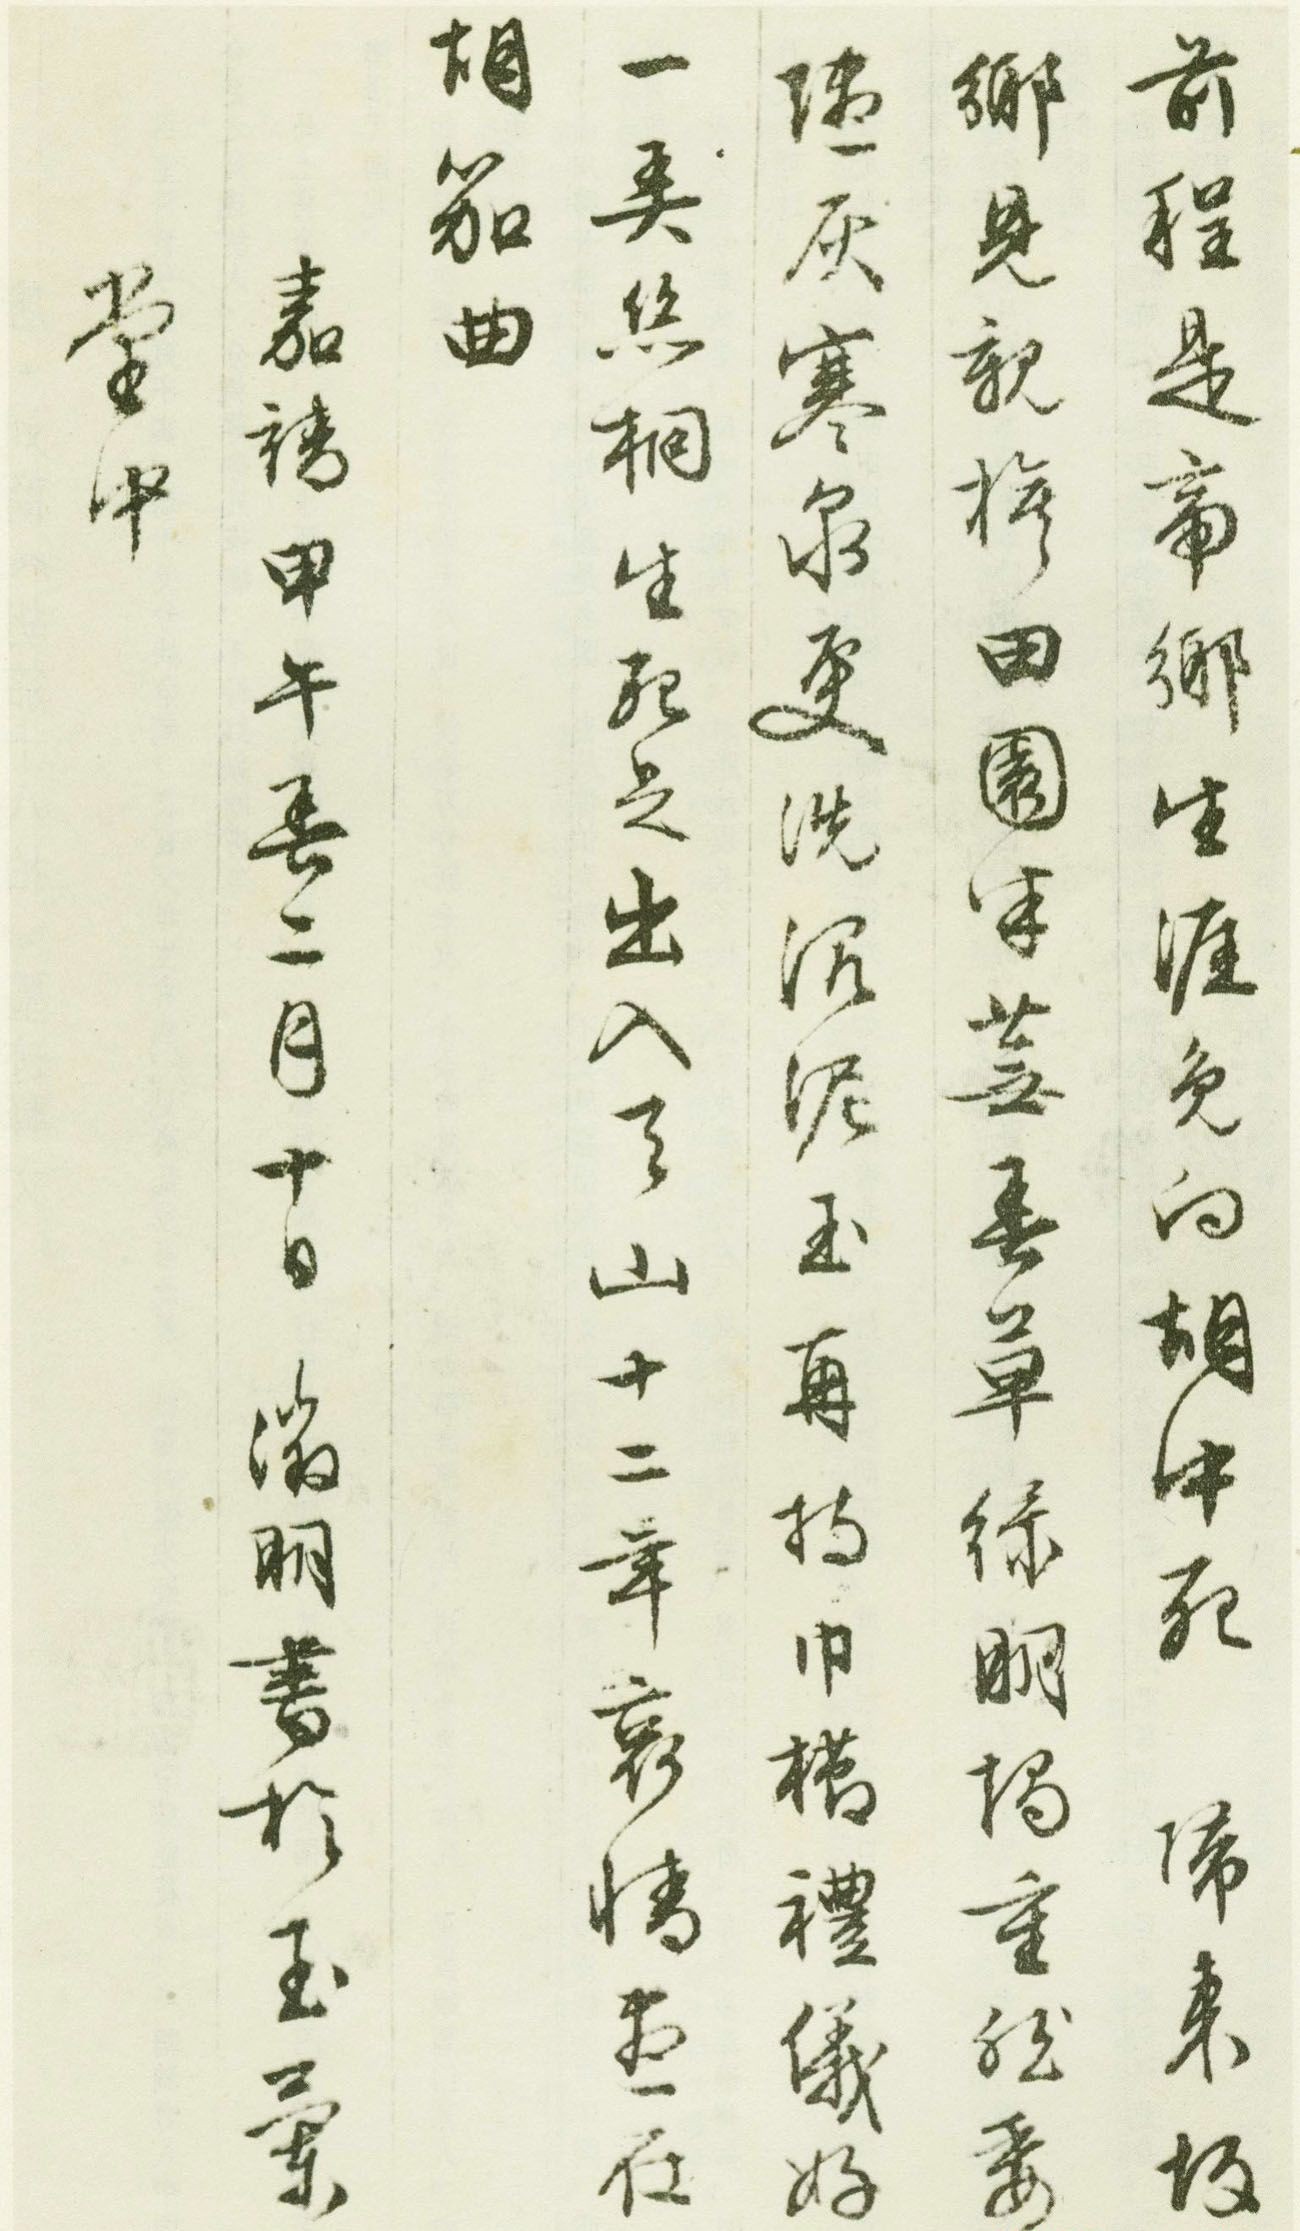 前程是帝鄉生涯免向胡中死 歸來故
鄉見親族田園半蕪春草綠明燭重然煨
燼灰寒泉更洗沉泥玉再持巾櫛禮儀好
一弄絲桐生死足出入天山十二年哀情盡在
胡笳曲
嘉靖甲午春二月十日 徵明書於玉蘭
堂中